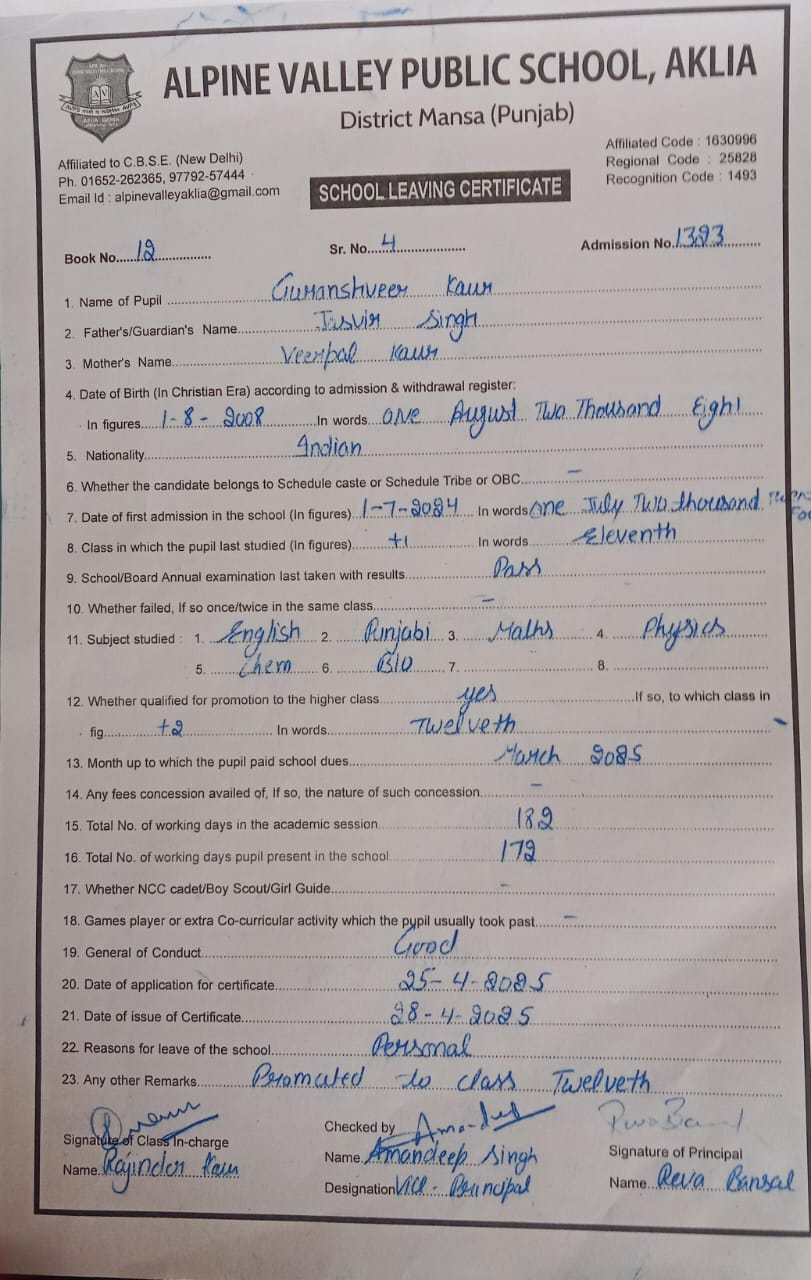 ALPINE VALLEY PUBLIC SCHOOL, AKLIA
District Mansa (Punjab)
Affiliated to C.B.S.E. (New Delhi)
Ph. 01652-262365, 97792-57444
Email Id : alpinevalleyaklia@gmail.com
Affiliated Code : 1630996
Regional Code : 25828
Recognition Code : 1493
SCHOOL LEAVING CERTIFICATE
Book No......12............... Sr. No....4..................... Admission No.1393..........
1. Name of Pupil Guranshveer Kaur
2. Father's/Guardian's Name Jasvir Singh
3. Mother's Name Veerpal Kaur
4. Date of Birth (In Christian Era) according to admission & withdrawal register:
In figures 1-8-2008 In words one August Two Thousand Eight
5. Nationality Indian
6. Whether the candidate belongs to Schedule caste or Schedule Tribe or OBC –
7. Date of first admission in the school (In figures) 1-7-2024 In words One July Two thousand
8. Class in which the pupil last studied (In figures) +1 In words Eleventh
9. School/Board Annual examination last taken with results Pass
10. Whether failed, If so once/twice in the same class –
11. Subject studied : 1. English 2. Punjabi 3. Maths 4. Physics
5. Chem 6. Bio 7. 8.
12. Whether qualified for promotion to the higher class yes If so, to which class in
fig. +2 In words Twelveth
13. Month up to which the pupil paid school dues March 2025
14. Any fees concession availed of, If so, the nature of such concession –
15. Total No. of working days in the academic session 182
16. Total No. of working days pupil present in the school 172
17. Whether NCC cadet/Boy Scout/Girl Guide –
18. Games player or extra Co-curricular activity which the pupil usually took past –
19. General of Conduct Good
20. Date of application for certificate 25-4-2025
21. Date of issue of Certificate 28-4-2025
22. Reasons for leave of the school Personal
23. Any other Remarks Promated to class Twelveth
Signature of Class In-charge
Name Rajinder Kaur
Checked by
Name Amandeep Singh
Designation Vice-Principal
Signature of Principal
Name Reva Bansal